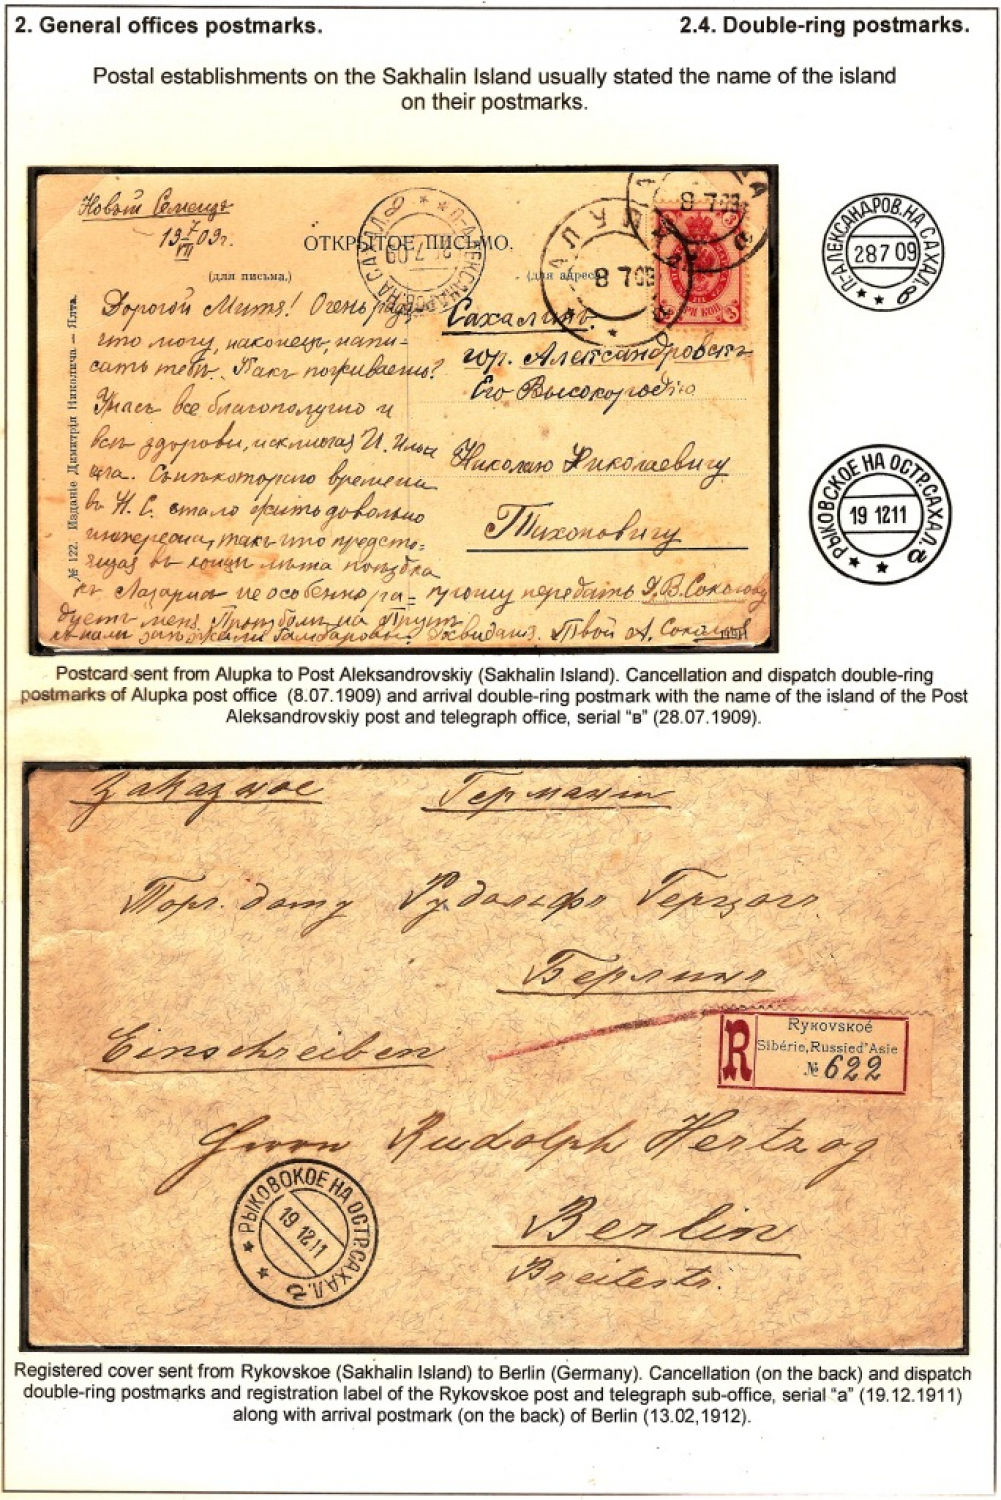 2. General offices postmarks.
2.4. Double-ring postmarks.
Postal establishments on the Sakhalin Island usually stated the name of the island
on their postmarks.
Новый Симеизъ
19 7/VII 09г.
ОТКРЫТОЕ ПИСЬМО.
(для письма.)
(для адреса
№ 122. Изданіе Димитрія Николича — Ялта.
Дорогой Митя! Очень радъ,
что могу, наконецъ, напи-
сать тебѣ. Какъ поживаешь?
У насъ все благополучно и
всѣ здоровы, исключая И. Ильи
ча. Съ нѣкотораго времени
въ Н. С. стало жить довольно
интересно, такъ что предсто-
ящая въ концѣ лѣта поѣздка
къ Лазарица не особенно ра-
дуетъ меня.
Твой А. Соколов
Сахалинъ.
гор. Александровскъ
Его Высокородію
Николаю Николаевичу
Тихоновичу
прошу передать Д. В. Соколову
П-АЛЕКСАНДРОВ. НА САХАЛ. в
28 7 09
АЛУПКА
8 7 09
8 7 09
а
ТРИ КОП.
3
3
П-АЛЕКСАНДРОВ. НА САХАЛ. в
28 7 09
РЫКОВСКОЕ НА ОСТР. САХАЛ. а
19 12 11
Postcard sent from Alupka to Post Aleksandrovskiy (Sakhalin Island). Cancellation and dispatch double-ring
postmarks of Alupka post office (8.07.1909) and arrival double-ring postmark with the name of the island of the Post
Aleksandrovskiy post and telegraph office, serial “в” (28.07.1909).
Заказное
Германія
Торг. дому Рудольфъ Герцогъ
Берлинъ
Einschreiben
R
Rykovskoé
Sibérie, Russie d'Asie
№ 622
Herrn Rudolph Hertzog
Berlin
Breitestr.
РЫКОВСКОЕ НА ОСТР. САХАЛ. а
19 12 11
Registered cover sent from Rykovskoe (Sakhalin Island) to Berlin (Germany). Cancellation (on the back) and dispatch
double-ring postmarks and registration label of the Rykovskoe post and telegraph sub-office, serial “a” (19.12.1911)
along with arrival postmark (on the back) of Berlin (13.02,1912).